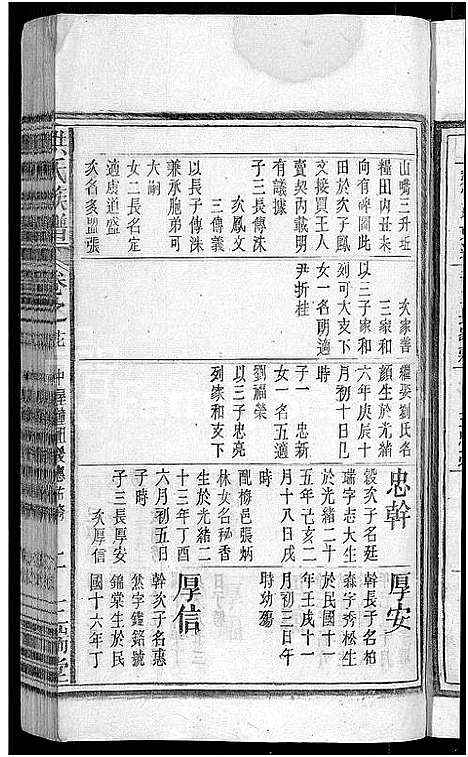 山嘴三升坵
糧田內丑未
向有碑圖此
田於次子鳳
文接買王人
賣契內載明
有議據
子三長傳洙
次鳳文
三傳義
以長子傳洙
兼承胞弟可
大嗣
女二長名定
適虞道盛
次名多盟張
次家善
三家和
以三子家和
列可大支下
女一名朋適
尹折桂
繼娶劉氏名
顏生於光緒
六年庚辰十
月初十日巳
時
子一 忠新
女一名五適
劉福榮
以三子忠亮
列家和支下
忠幹
穀次子名廷
瑞字志大生
於光緒二十
五年己亥二
月十八日戌
時
配樁邑張炳
林女名秘香
生於光緒二
十三年丁酉
六月初五日
子時
子三長厚安
次厚信
厚安
幹長子名柏
森字秀松生
於民國十一
年壬戌十一
月初三日午
時幼殤
厚信
幹次子名憓
烝字鑑銘號
錦棠生於民
國十六年丁
洪氏族譜
卷之